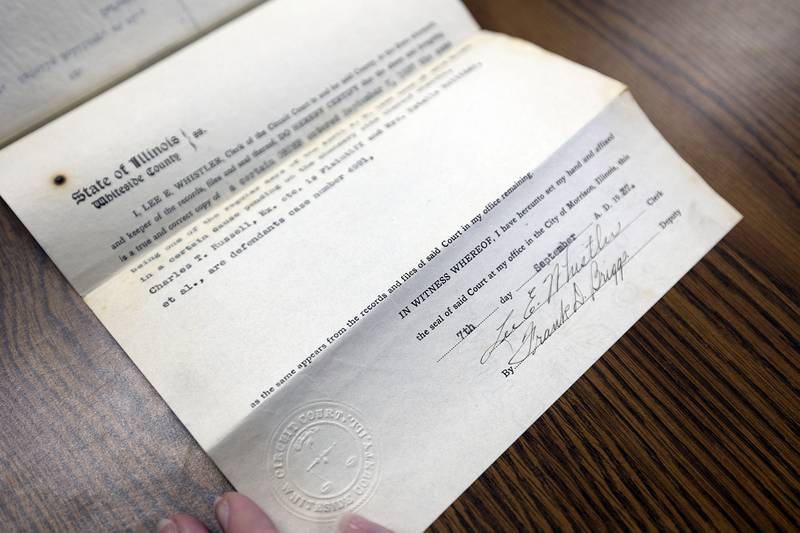 State of Illinois
Whiteside County
ss.
I, LEE E. WHISTLER, Clerk of the Circuit Court in and for said County, in the State aforesaid
and keeper of the records, files and seal thereof, DO HEREBY CERTIFY the above and foregoing
is a true and correct copy of a certain ORDER entered September 7, 1927 the same
being one of the regular days of
in a certain cause pending on the
Charles T. Russell, Ex. etc. is Plaintiff and Mrs.
et al., are defendants case number 4991,
as the same appears from the records and files of said Court in my office remaining.
IN WITNESS WHEREOF, I have hereunto set my hand and affixed
the seal of said Court at my office in the City of Morrison, Illinois, this
7th day September A. D. 1927.
Lee E. Whistler Clerk
By Frank D. Briggs Deputy
CIRCUIT COURT
WHITESIDE COUNTY